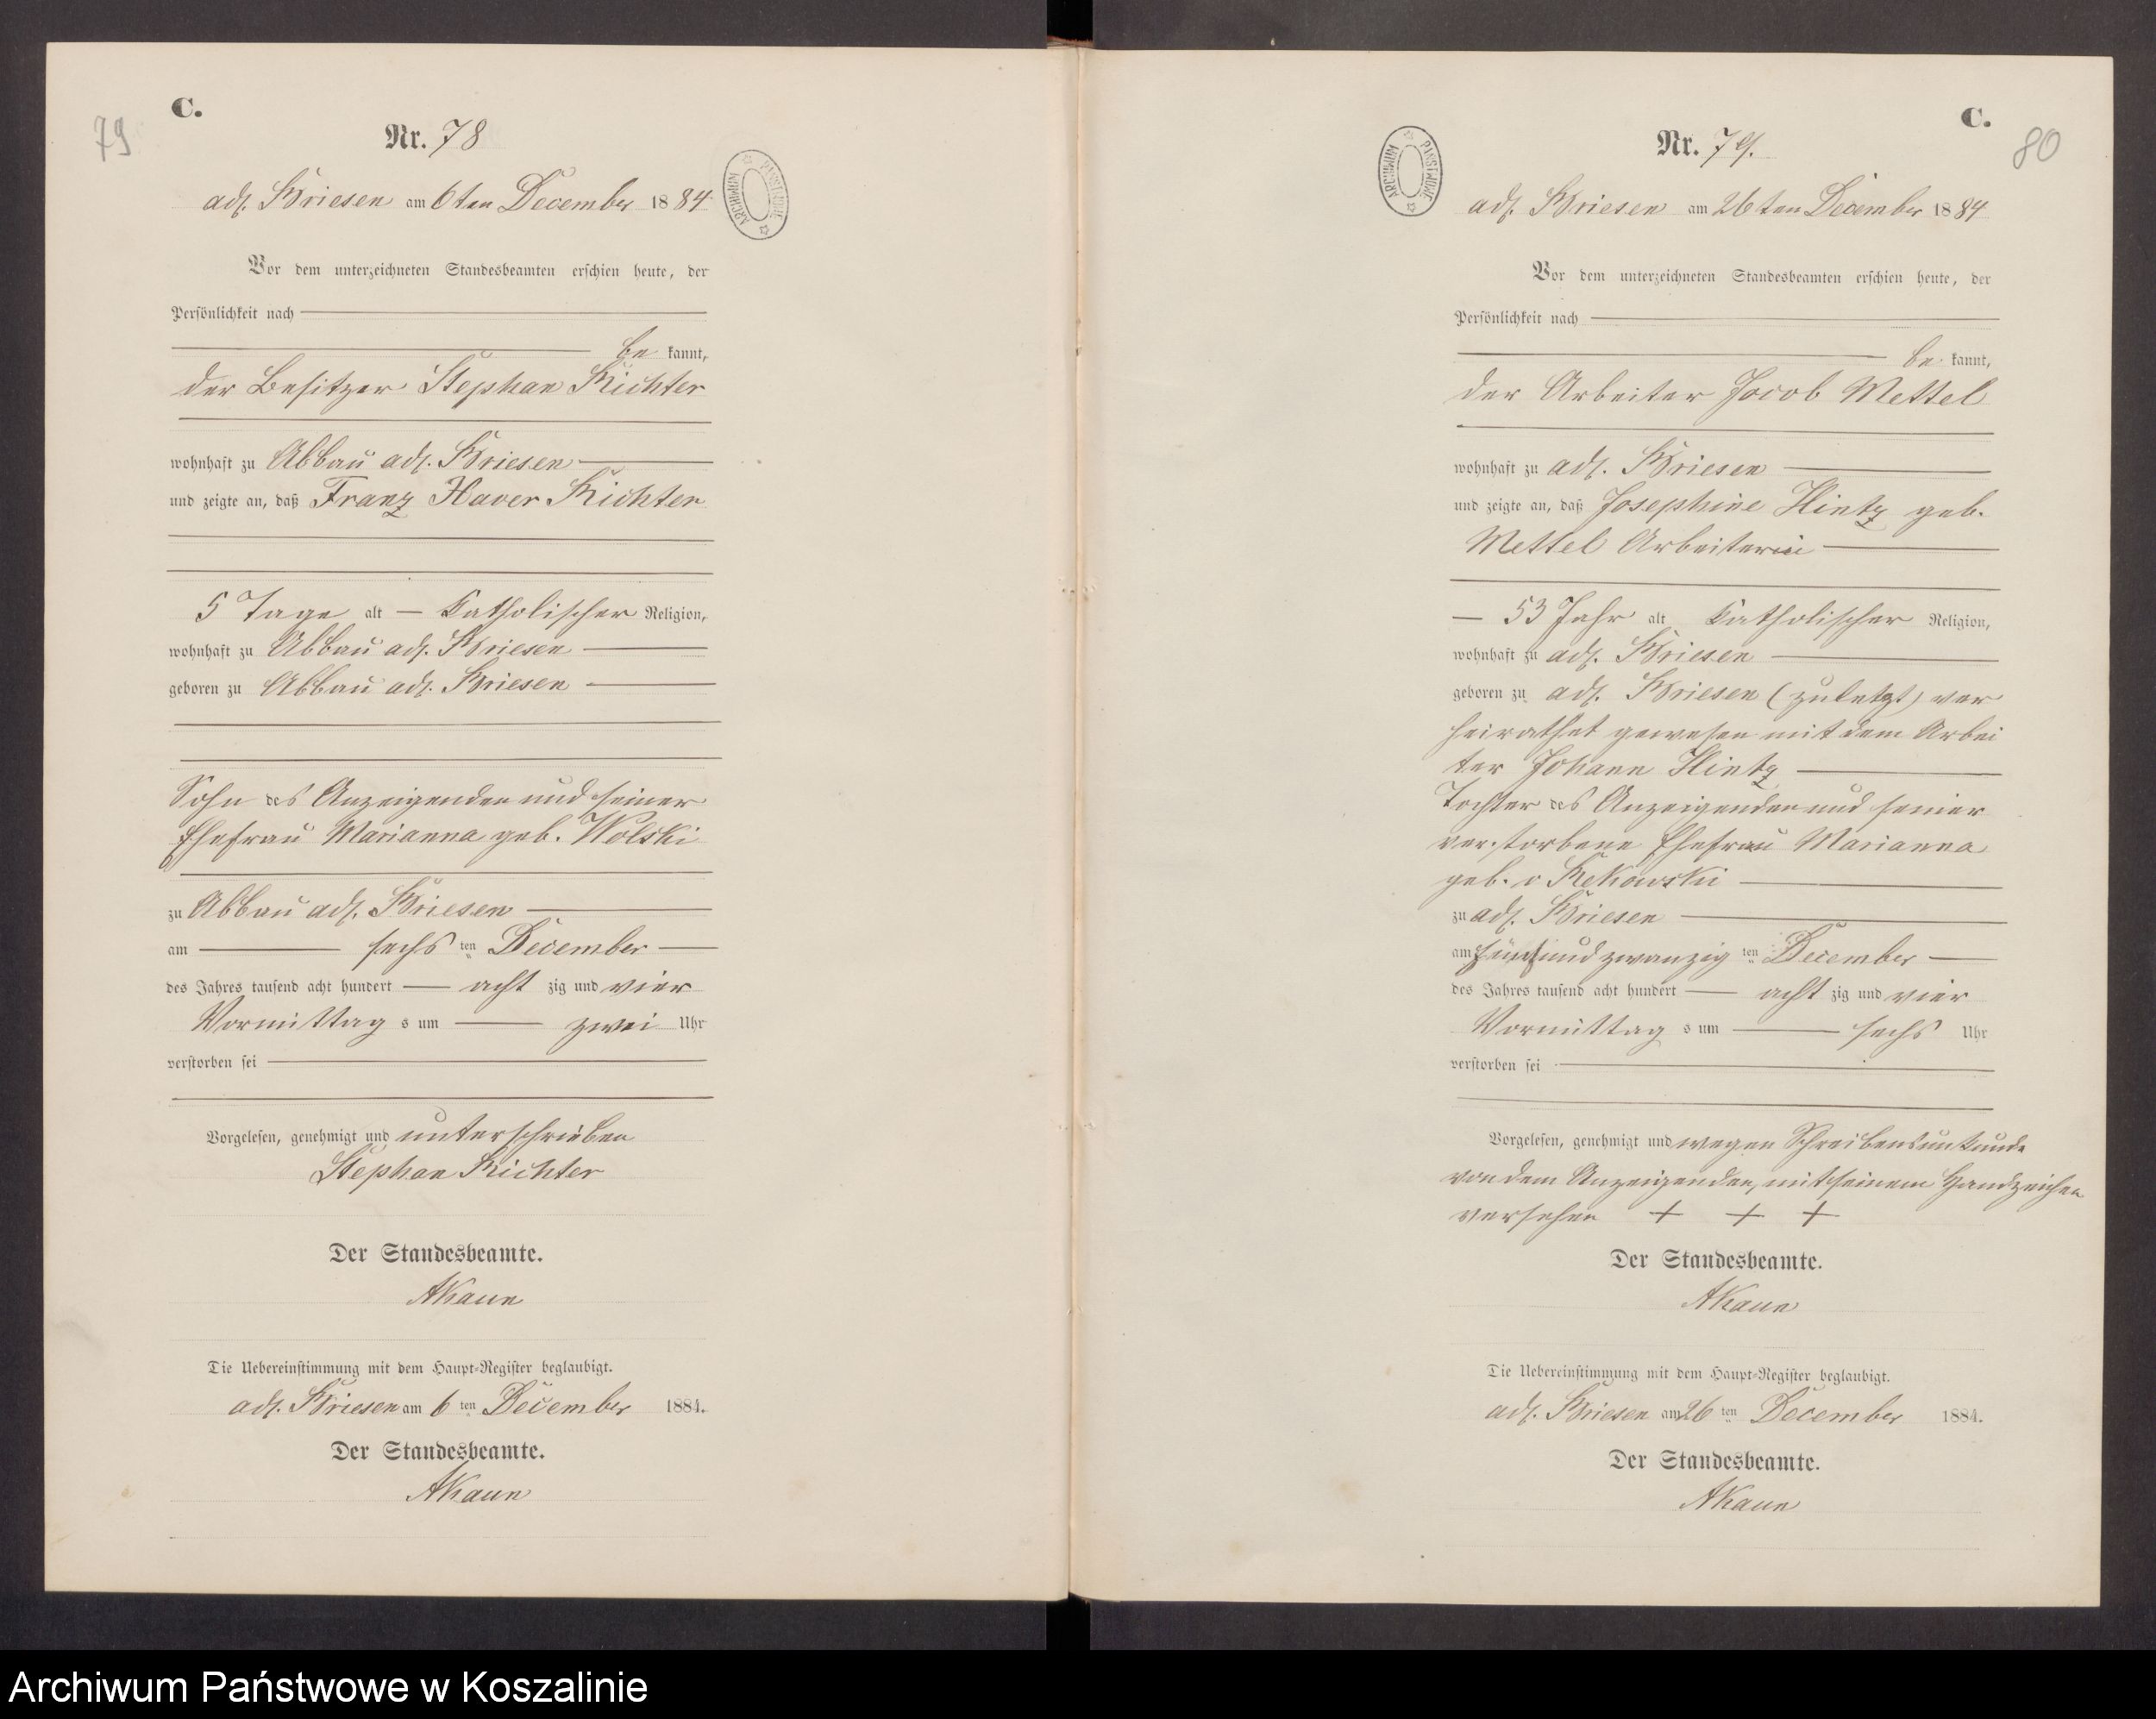 79
C.
Nr. 78
adl. Briesen am 6ten December 1884
ARCHIWUM PAŃSTWOWE
Vor dem unterzeichneten Standesbeamten erschien heute, der
Persönlichkeit nach
be kannt,
der Besitzer Stephan Richter
wohnhaft zu Abbau adl. Briesen
und zeigte an, daß Franz Xaver Richter
5 Tage alt — katholischer Religion,
wohnhaft zu Abbau adl. Briesen
geboren zu Abbau adl. Briesen
Sohn des Anzeigenden und seiner
Ehefrau Marianna geb. Wolski
zu Abbau adl. Briesen
am — sechs ten December
des Jahres tausend acht hundert — acht zig und vier
Vormittag s um — zwei Uhr
verstorben sei
Vorgelesen, genehmigt und unterschrieben
Stephan Richter
Der Standesbeamte.
AKaun
Die Uebereinstimmung mit dem Haupt-Register beglaubigt.
adl. Briesen am 6 ten December 1884.
Der Standesbeamte.
AKaun
C.
80
Nr. 79.
ARCHIWUM PAŃSTWOWE
adl. Briesen am 26ten December 1884
Vor dem unterzeichneten Standesbeamten erschien heute, der
Persönlichkeit nach
be kannt,
der Arbeiter Jacob Mettel
wohnhaft zu adl. Briesen
und zeigte an, daß Josephine Hintz geb.
Mettel Arbeiterin
— 53 Jahr alt katholischer Religion,
wohnhaft zu adl. Briesen
geboren zu adl. Briesen (zuletzt) ver
heirathet gewesen mit dem Arbei
ter Johann Hintz
Tochter des Anzeigenden und seiner
verstorbene Ehefrau Marianna
geb. v Rekowski
zu adl. Briesen
am fünfundzwanzig ten December
des Jahres tausend acht hundert — acht zig und vier
Vormittag s um — sechs Uhr
verstorben sei
Vorgelesen, genehmigt und wegen Schreibensunkunde
von dem Anzeigenden, mit seinem Handzeichen
versehen + + +
Der Standesbeamte.
AKaun
Die Uebereinstimmung mit dem Haupt-Register beglaubigt.
adl. Briesen am 26 ten December 1884.
Der Standesbeamte.
AKaun
Archiwum Państwowe w Koszalinie